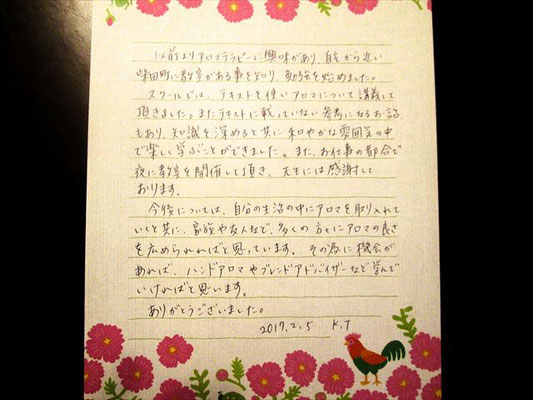 以前よりアロマテラピーに興味があり、自宅から近い
柴田町に教室がある事を知り、勉強を始めました。
スクールでは、テキストを使いアロマについて講義して
頂きました。またテキストに載っていない参考になるお話
もあり、知識を深めると共に和やかな雰囲気の中
で楽しく学ぶことができました。また、お仕事の都合で
夜に教室を開催して頂き、先生には感謝して
おります。
今後については、自分の生活の中にアロマを取り入れて
いくと共に、家族や友人など、多くの方々にアロマの良さ
を広められればと思っています。その為に機会が
あれば、ハンドアロマやブレンドアドバイザーなど学んで
いければと思います。
ありがとうございました。
2017.2.5 K.T